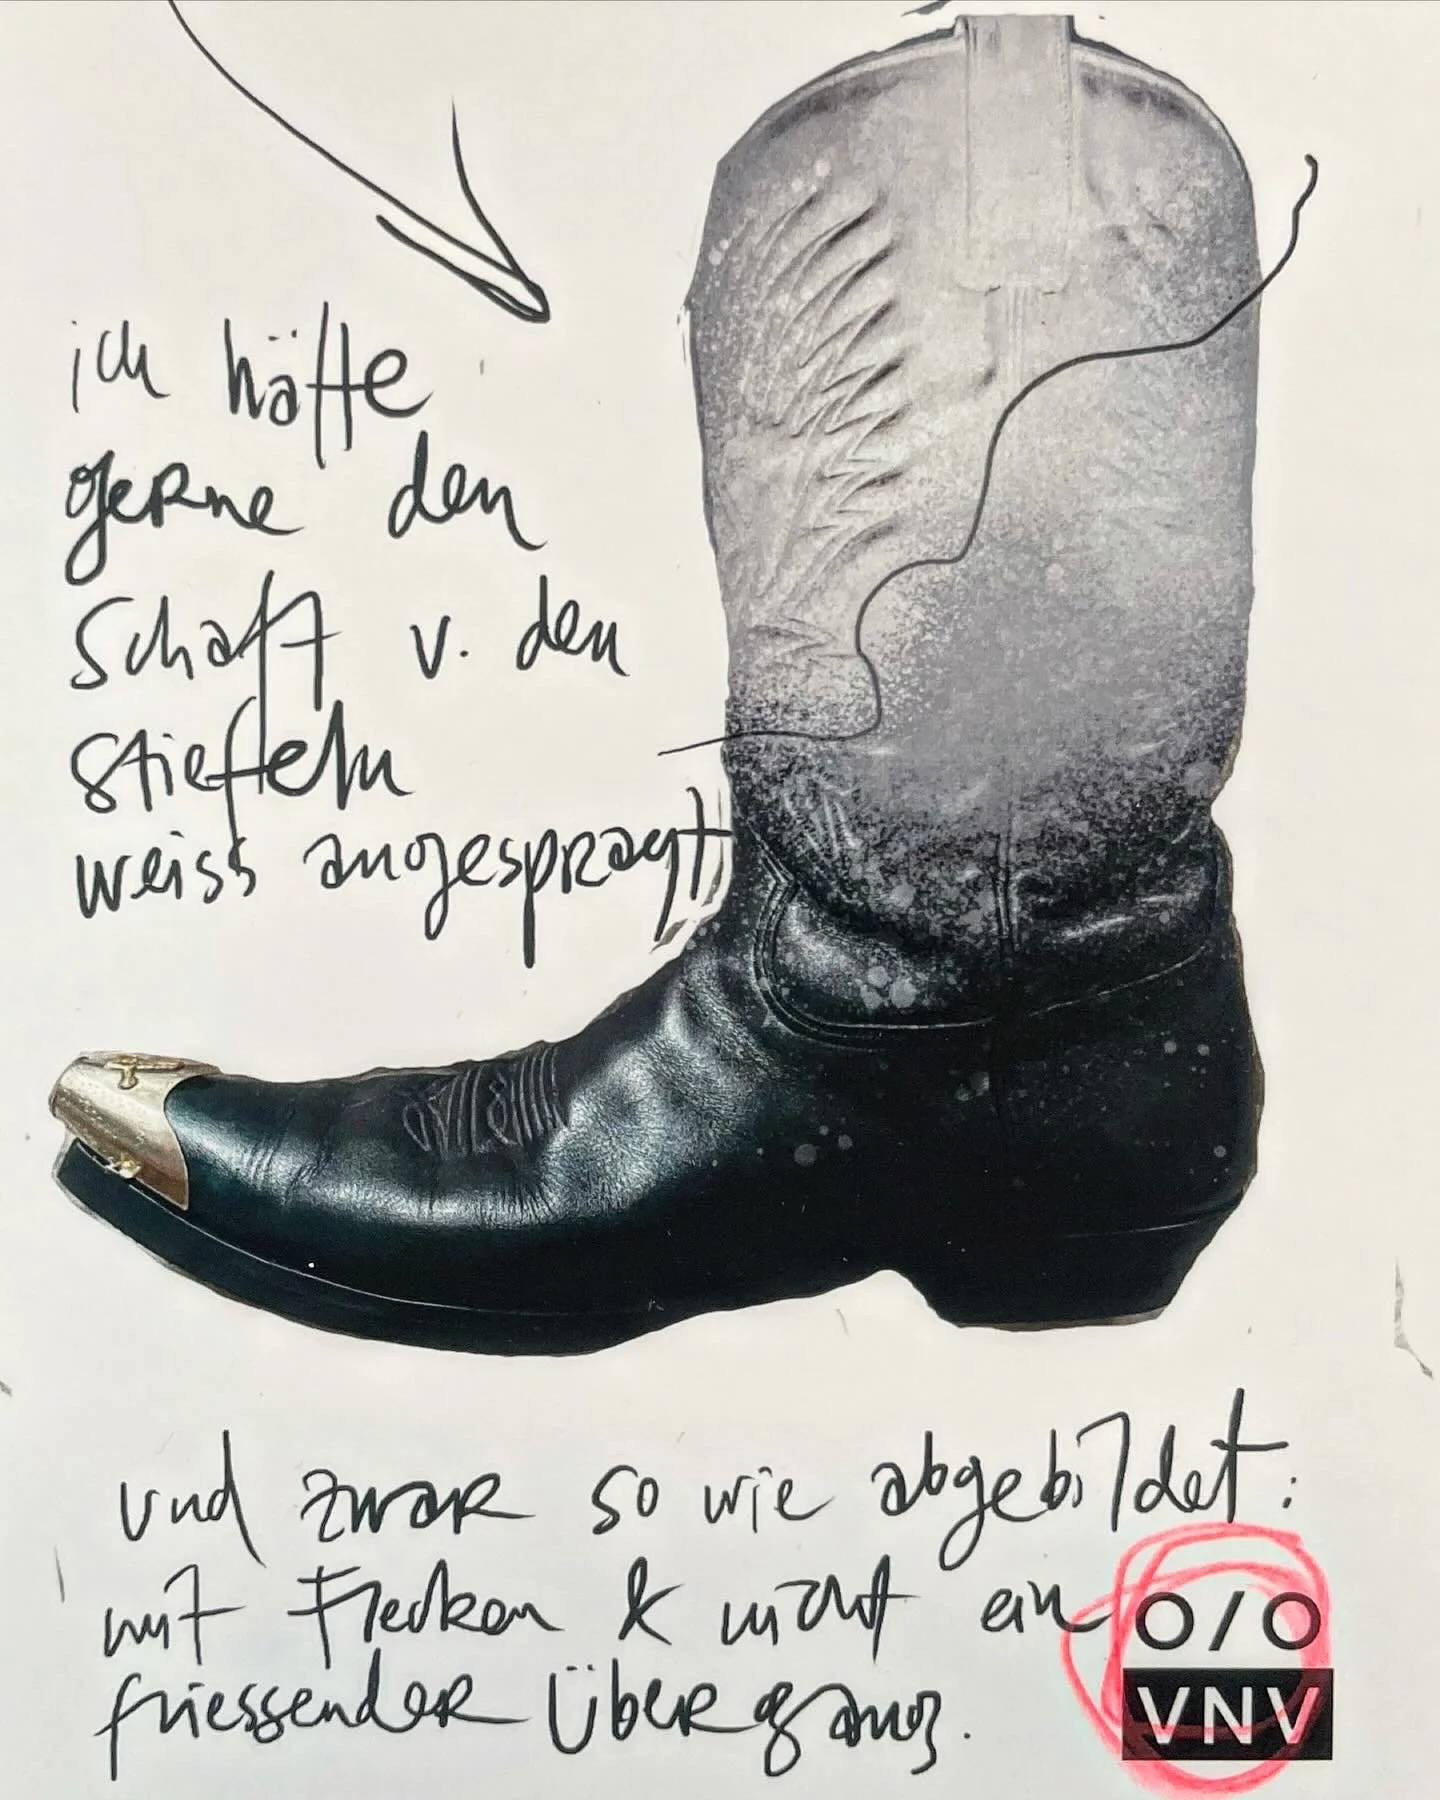 ich hätte
gerne den
Schaft v. den
Stiefeln
weiss angesprayt
und zwar so wie abgebildet:
mit Flecken & nicht ein
fliessender Übergang.
O/O
VNV